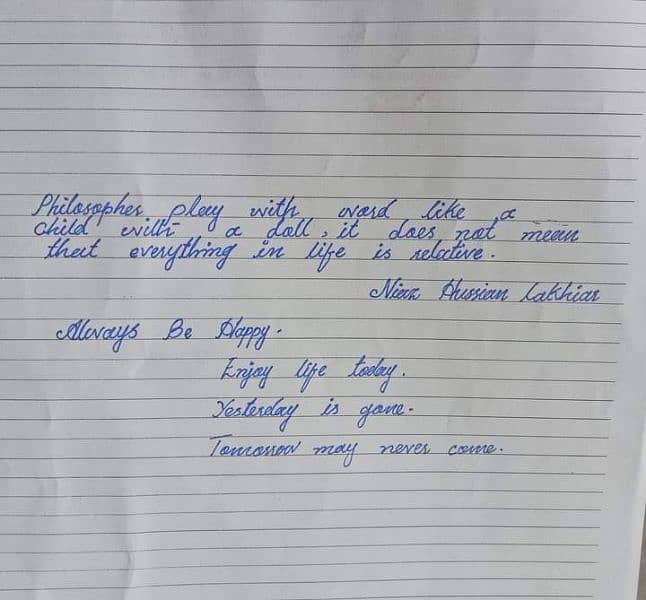 Philosopher play with word like a
child with a doll, it does not mean
that everything in life is relative.
Niaz Hussian Lakhiar
Always Be Happy.
Enjoy life today.
Yesterday is gone.
Tomorrow may never come.